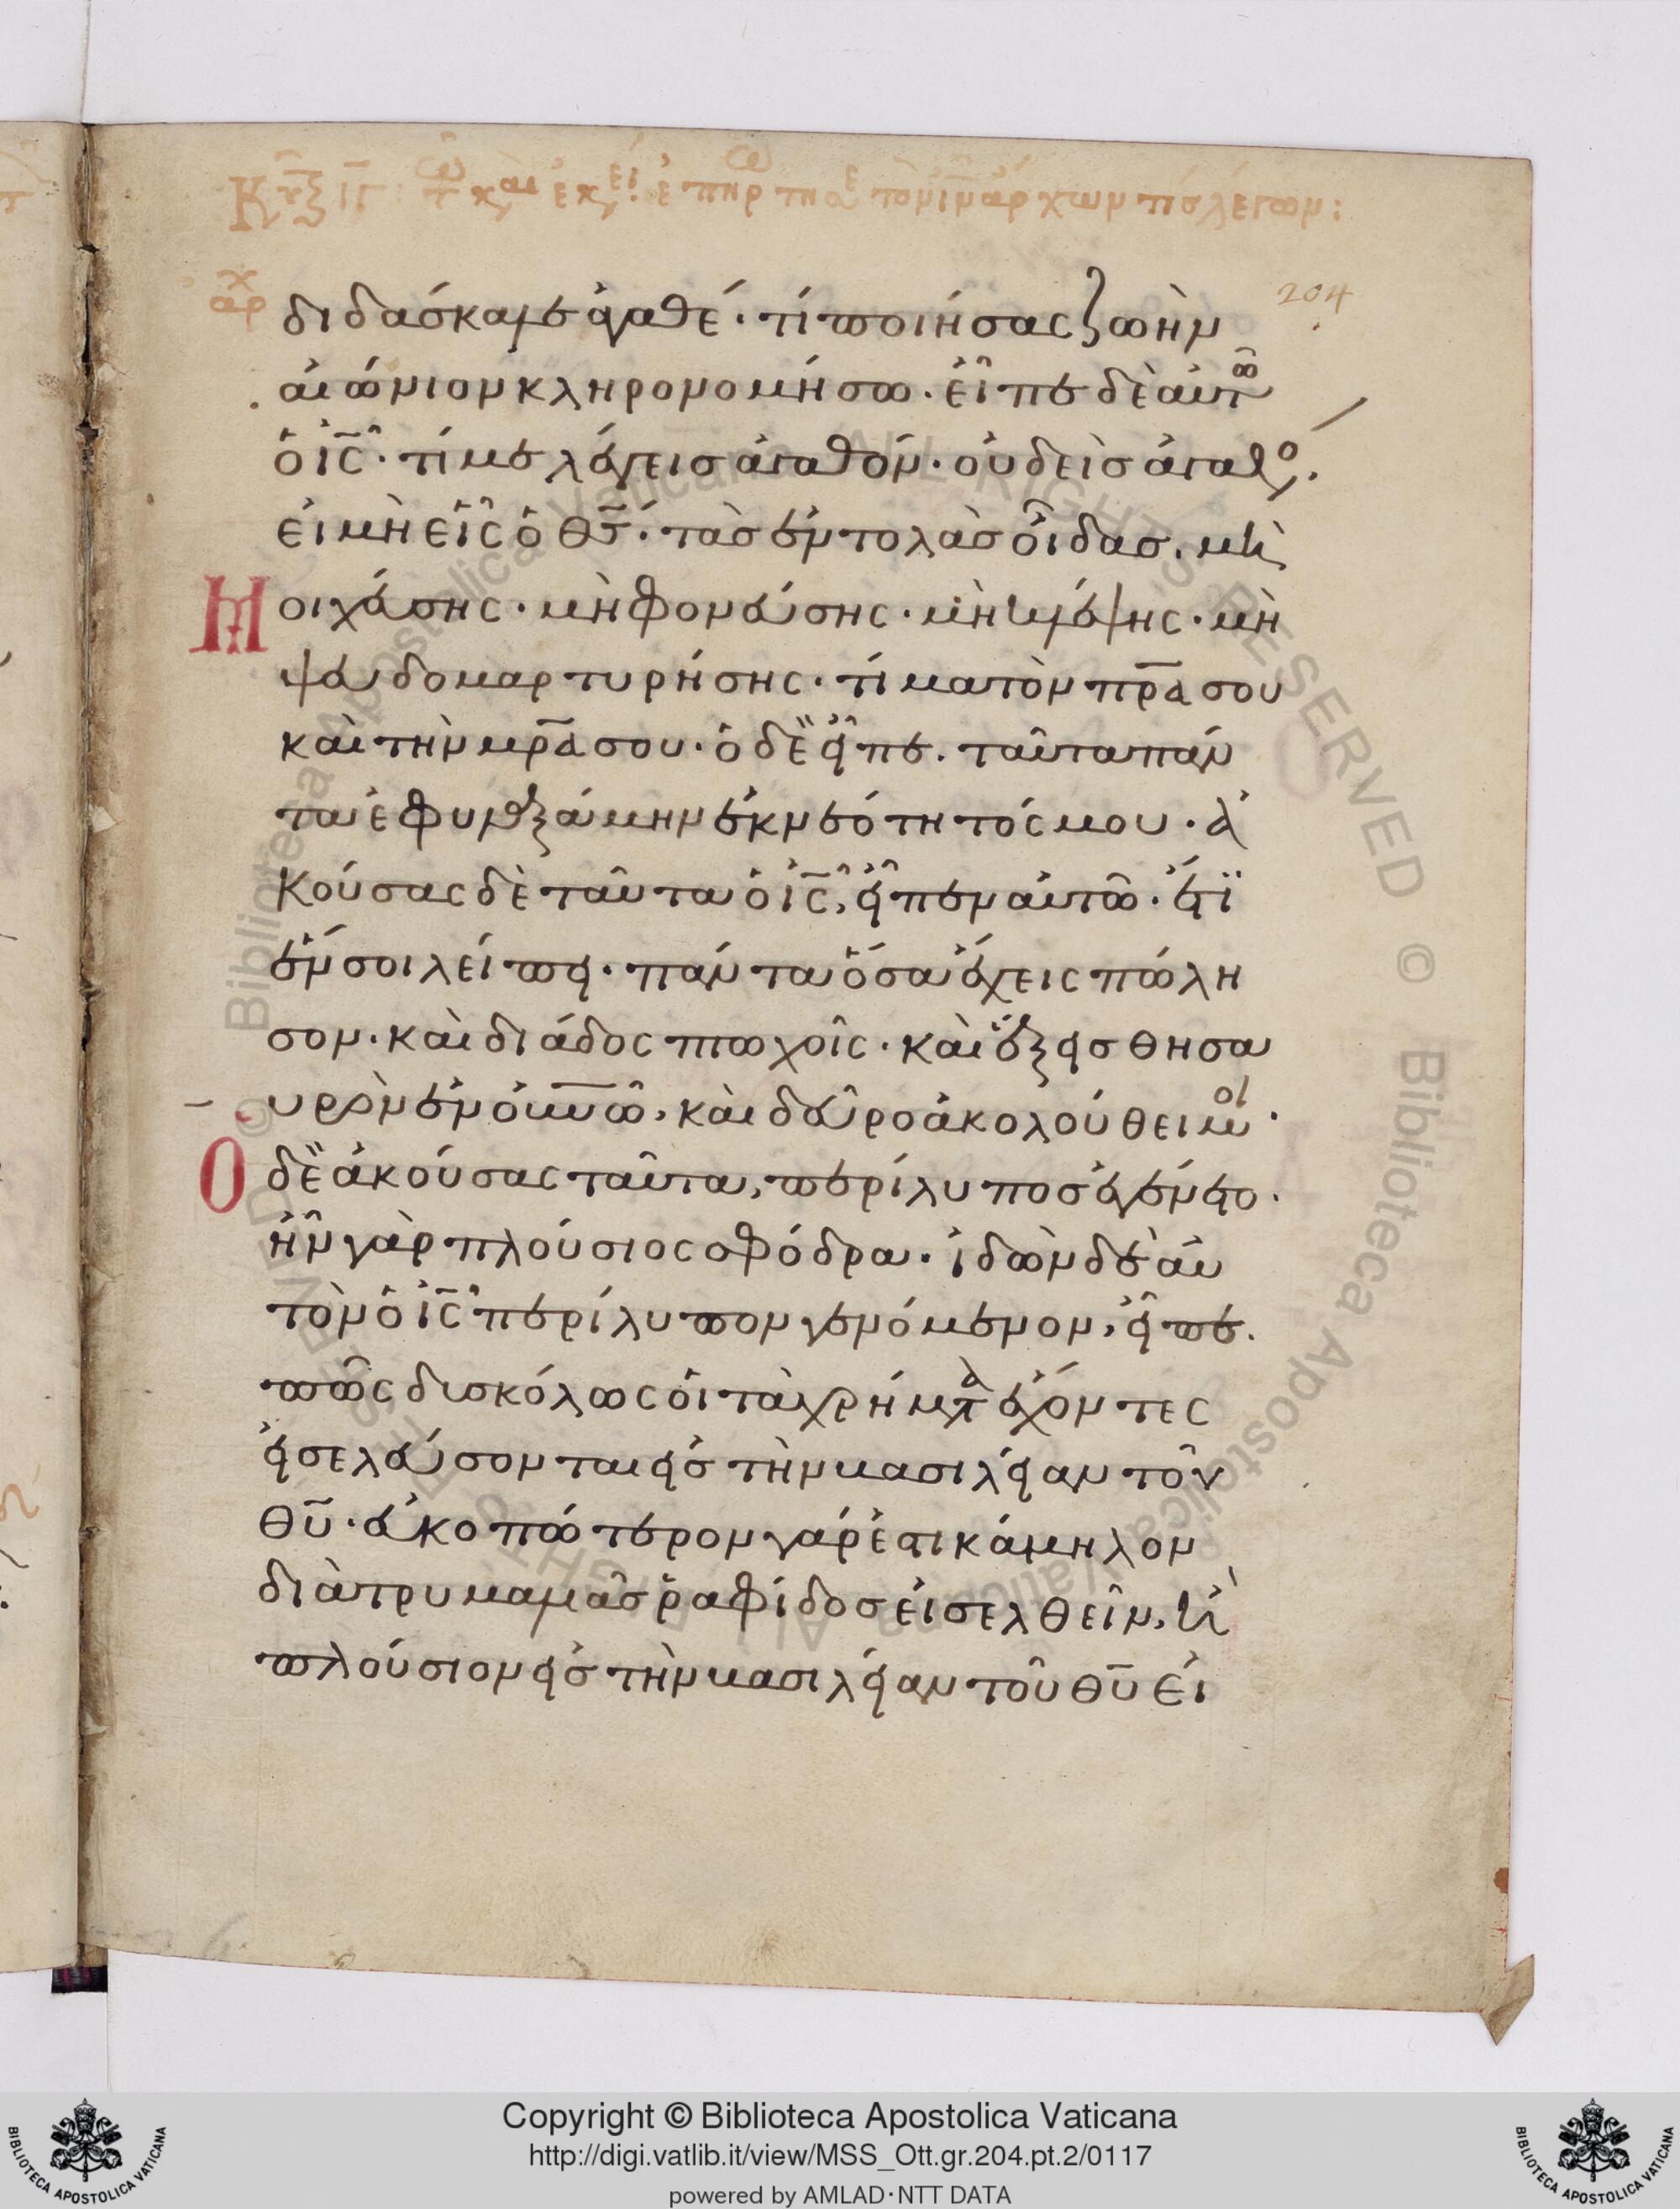 διδάσκαλε ἀγαθέ· τί ποιήσας ζωὴν
αἰώνιον κληρονομήσω· εἶπε δὲ αὐτῶ
ὁ ἰς̅· τί με λέγεις ἀγαθόν· οὐδεὶς ἀγαθο.
εἰ μὴ εἷς ὁ θς̅· τὰς ἐντολὰς οἶδας. μὴ
Μοιχεύσης· μὴ φονεύσης· μὴ κλέψης· μὴ
ψευδομαρτυρήσης· τίμα τὸν πρ̅α σου
καὶ τὴν μρ̅α σου· ὁ δὲ εἶπε. ταῦτα πάν
τα ἐφυλαξάμην ἐκ νεότητός μου· ἀ
κούσας δὲ ταῦτα ὁ ἰς̅, εἶπεν αὐτῶ· ἔτι
ἕν σοι λείπει· πάντα ὅσα ἔχεις πώλη
σον· καὶ διάδος πτωχοῖς· καὶ ἕξεις θησα
υρὸν ἐν ὀυν̅ῶ, καὶ δεῦρο ἀκολούθει μοι·
Ὁ δὲ ἀκούσας ταῦτα, περίλυπος ἐγένετο·
ἦν γὰρ πλούσιος σφόδρα· ἰδὼν δὲ αὐ
τὸν ὁ ἰς̅ περίλυπον γενόμενον, εἶπε.
πῶς δυσκόλως οἱ τὰ χρήματα ἔχοντες
εἰσελεύσονται εἰς τὴν βασιλείαν τοῦ
θυ̅· εὐκοπώτερον γάρ ἐστι κάμηλον
διὰ τρυμαλιᾶς ῥαφίδος εἰσελθεῖν, ἢ
πλούσιον εἰς τὴν βασιλείαν τοῦ θυ̅ εἰ
204
Biblioteca Apostolica Vaticana ALL RIGHTS RESERVED ©
Copyright © Biblioteca Apostolica Vaticana
http://digi.vatlib.it/view/MSS_Ott.gr.204.pt.2/0117
powered by AMLAD·NTT DATA
BIBLIOTECA APOSTOLICA VATICANA
BIBLIOTECA APOSTOLICA VATICANA